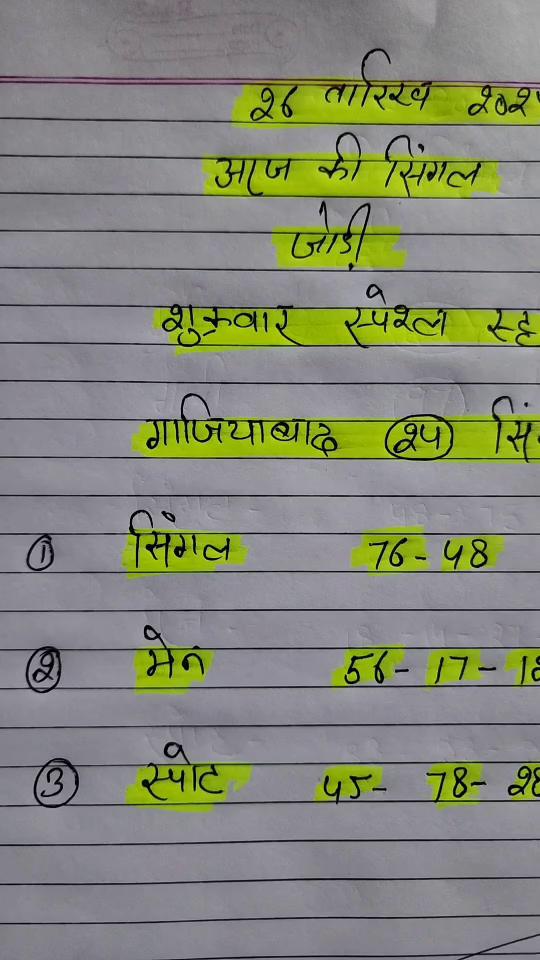 २६ तारिख २०२५
आज की सिंगल
जोड़ी
शुक्रवार स्पेशल
गाजियाबाद २५
① सिंगल 76-48
② मेन 56-17-18
③ स्पोट 45-78-28